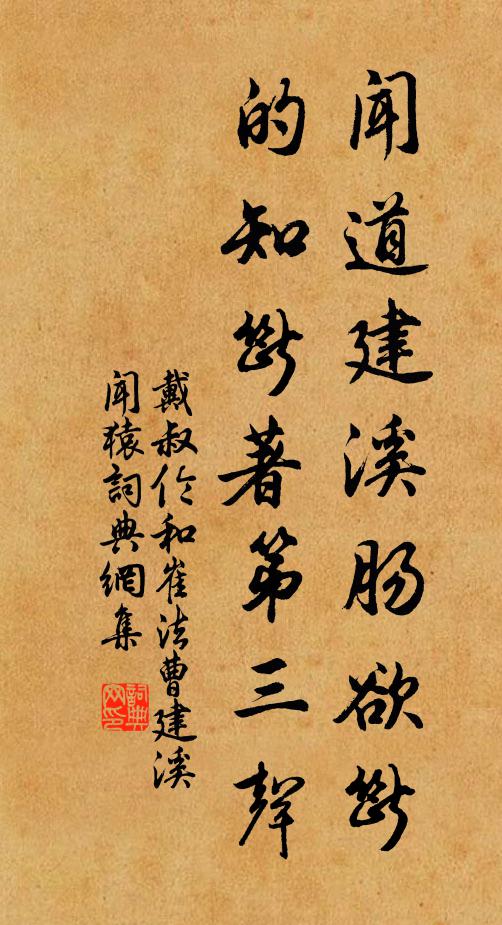 闻道建溪肠欲断
的知断著第三聲
戴叔伦和崔法曹建溪
闻猿詞典網集
詞典
网印